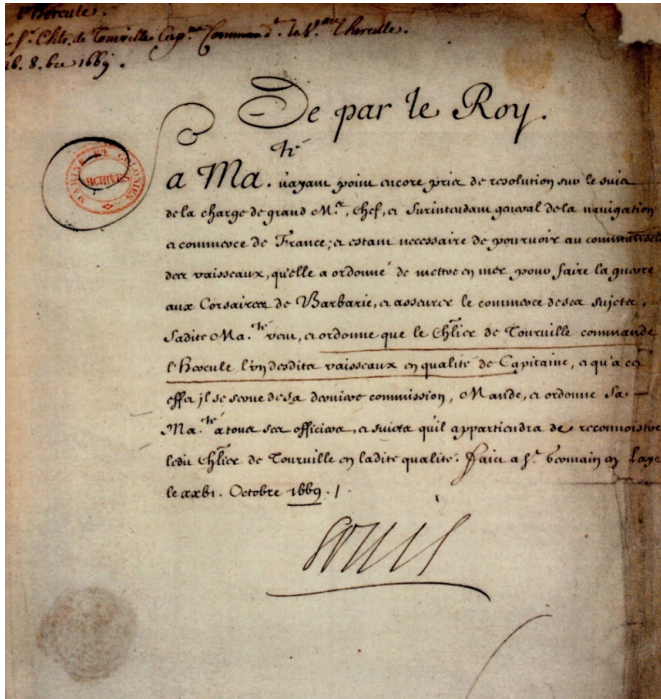 l'Hercule.
le Sr. Chlr. de Tourville Cap.ne Command.t le V.au l'hercule.
26. 8.bre 1669.
De par le Roy.
MARINE ET COLONIES
ARCHIVES
Sa Ma.té n'ayant point encore pris de resolution sur le suiet
de la charge de grand M.e, chef, et Surintendant general de la navigation
et commerce de France; et estant necessaire de pourvoir au commandement
des vaisseaux, qu'elle a ordonné de mettre en mer pour faire la guerre
aux Corsaires de Barbarie, et asseurer le commerce de ses sujets,
Sadite Ma.té veut, et ordonne que le Chlier de Tourville commande
l'Hercule l'un desdits vaisseaux en qualité de Capitaine, et qu'a cet
effet jl se serve de sa derniere commission, Mande, et ordonne Sa
Ma.té a tous ses officiers, et suiets qu'il appartiendra de reconnoistre
ledit Chlier de Tourville en ladite qualité. Faict a St. Germain en Laye
le xxvi. Octobre 1669. /.
Louis